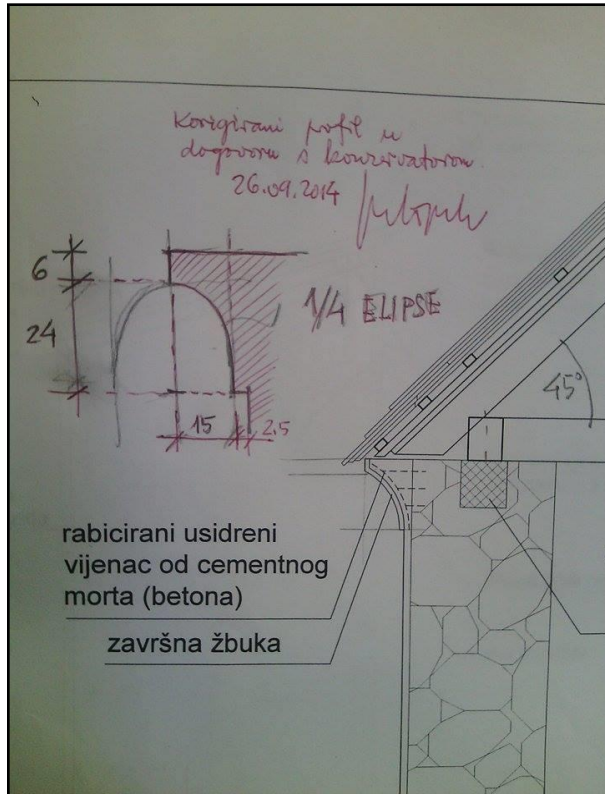 Korigirani profil u
dogovoru s konzervatorom
26.09.2014
6
24
1/4 ELIPSE
15
2.5
45°
rabicirani usidreni
vijenac od cementnog
morta (betona)
završna žbuka